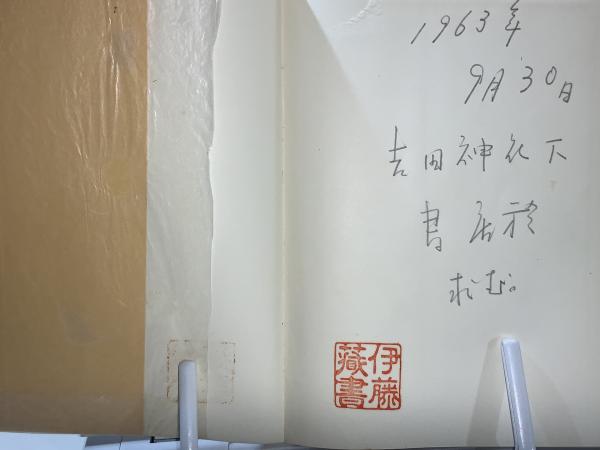 1963年
9月30日
吉田神社下
書店於
求む。
伊藤
蔵書